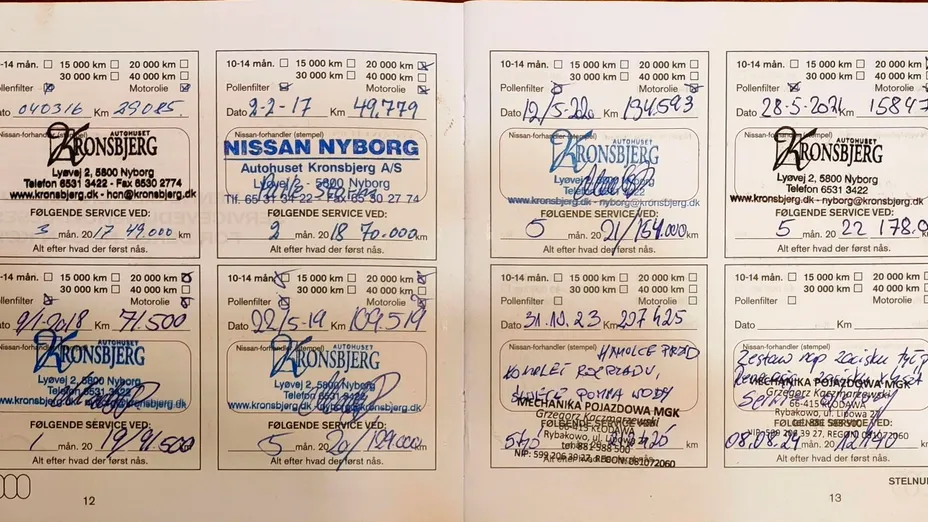 10-14 mån. 15 000 km 20 000 km
30 000 km 40 000 km
Pollenfilter Motorolie
Dato 040316 Km 29085
Nissan-forhandler (stempel)
AUTOHUSET
KRONSBJERG
Lyøvej 2, 5800 Nyborg
Telefon 6531 3422 - Fax 6530 2774
www.kronsbjerg.dk - hon@kronsbjerg.dk
FØLGENDE SERVICE VED:
3 mån. 20 17 49.000 km
Alt efter hvad der først nås.
10-14 mån. 15 000 km 20 000 km
30 000 km 40 000 km
Pollenfilter Motorolie
Dato 2-2-17 Km 49,779
Nissan-forhandler (stempel)
NISSAN NYBORG
Autohuset Kronsbjerg A/S
Lyøvej 2 - 5800 Nyborg
Tlf. 65 31 34 22 - Fax 65 30 27 74
FØLGENDE SERVICE VED:
2 mån. 20 18 70.000 km
Alt efter hvad der først nås.
-14 mån. 15 000 km 20 000 km
30 000 km 40 000 km
Pollenfilter Motorolie
Dato 9/1-2018 Km 71.500
Nissan-forhandler (stempel)
AUTOHUSET
KRONSBJERG
Lyøvej 2, 5800 Nyborg
Telefon 6531 3422
www.kronsbjerg.dk kronsbjerg.dk
FØLGENDE SERVICE VED:
1 mån. 20 19/91.500 km
Alt efter hvad der først nås.
10-14 mån. 15 000 km 20 000 km
30 000 km 40 000 km
Pollenfilter Motorolie
Dato 22/5-19 Km 109.519
Nissan-forhandler (stempel)
AUTOHUSET
KRONSBJERG
Lyøvej 2, 5800 Nyborg
Telefon 6531 3422
www.kronsbjerg.dk kronsbjerg.dk
FØLGENDE SERVICE VED:
5 mån. 20 20/129.000 km
Alt efter hvad der først nås.
12
10-14 mån. 15 000 km 20 000 km
30 000 km 40 000 km
Pollenfilter Motorolie
Dato 12/5-220 Km 134.593
Nissan-forhandler (stempel)
AUTOHUSET
KRONSBJERG
Lyøvej 2, 5800 Nyborg
Telefon 6531 3422
www.kronsbjerg.dk - nyborg@kronsbjerg.dk
FØLGENDE SERVICE VED:
5 mån. 20 21/154.000 km
Alt efter hvad der først nås.
10-14 mån. 15 000 km 20 000 km
30 000 km 40 000 km
Pollenfilter Motorolie
Dato 28-5-2021 Km 15847
Nissan-forhandler (stempel)
AUTOHUSET
KRONSBJERG
Lyøvej 2, 5800 Nyborg
Telefon 6531 3422
www.kronsbjerg.dk - nyborg@kronsbjerg.dk
FØLGENDE SERVICE VED:
5 mån. 20 22 178.0
Alt efter hvad der først nås.
10-14 mån. 15 000 km 20 000 km
30 000 km 40 000 km
Pollenfilter Motorolie
Dato 31.10.23 Km 207425
Nissan-forhandler (stempel) HAMULCE PRZÓD
KOMPLET ROZRZĄDU,
POMPA WODY
MECHANIKA POJAZDOWA MGK
Grzegorz Kaczmarzewski
66-415 KŁODAWA
FØLGENDE SERVICE VED:
Rybakowo, ul. Lipowa 27
NIP: 599 206 39 27, REGON 081072060
Alt efter hvad der først nås.
10-14 mån. 15 000 km 20 000 km
30 000 km 40 000 km
Pollenfilter Motorolie
Dato Km
Nissan-forhandler (stempel)
Zestaw nap zacisku tył
MECHANIKA POJAZDOWA MGK
Grzegorz Kaczmarzewski
66-415 KŁODAWA
Rybakowo, ul. Lipowa 27
FØLGENDE SERVICE VED:
NIP: 599 206 39 27, REGON 081072060
08.08.24 mån. 20
Alt efter hvad der først nås.
13
STELNU